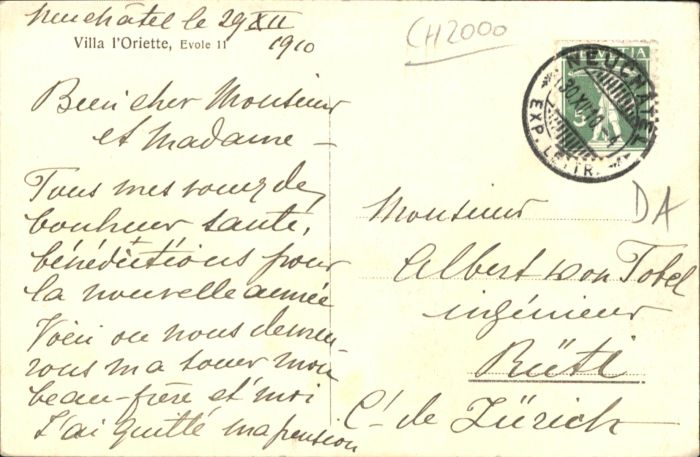 Neuchâtel le 29 XII
1910
Villa l'Oriette, Evole 11
Bien cher Monsieur
et Madame –
Tous mes voeux de
bonheur santé,
bénédictions pour
la nouvelle année
Voici ou nous demeu-
rons ma soeur mon
beau-frère et moi
J'ai quitté ma pension
CH2000
HELVETIA
5
NEUCHATEL
30.XII.10.–4
EXP. LETTR.
DA
Monsieur
Albert von Tobel
ingénieur
Rüti
Ct. de Zürich